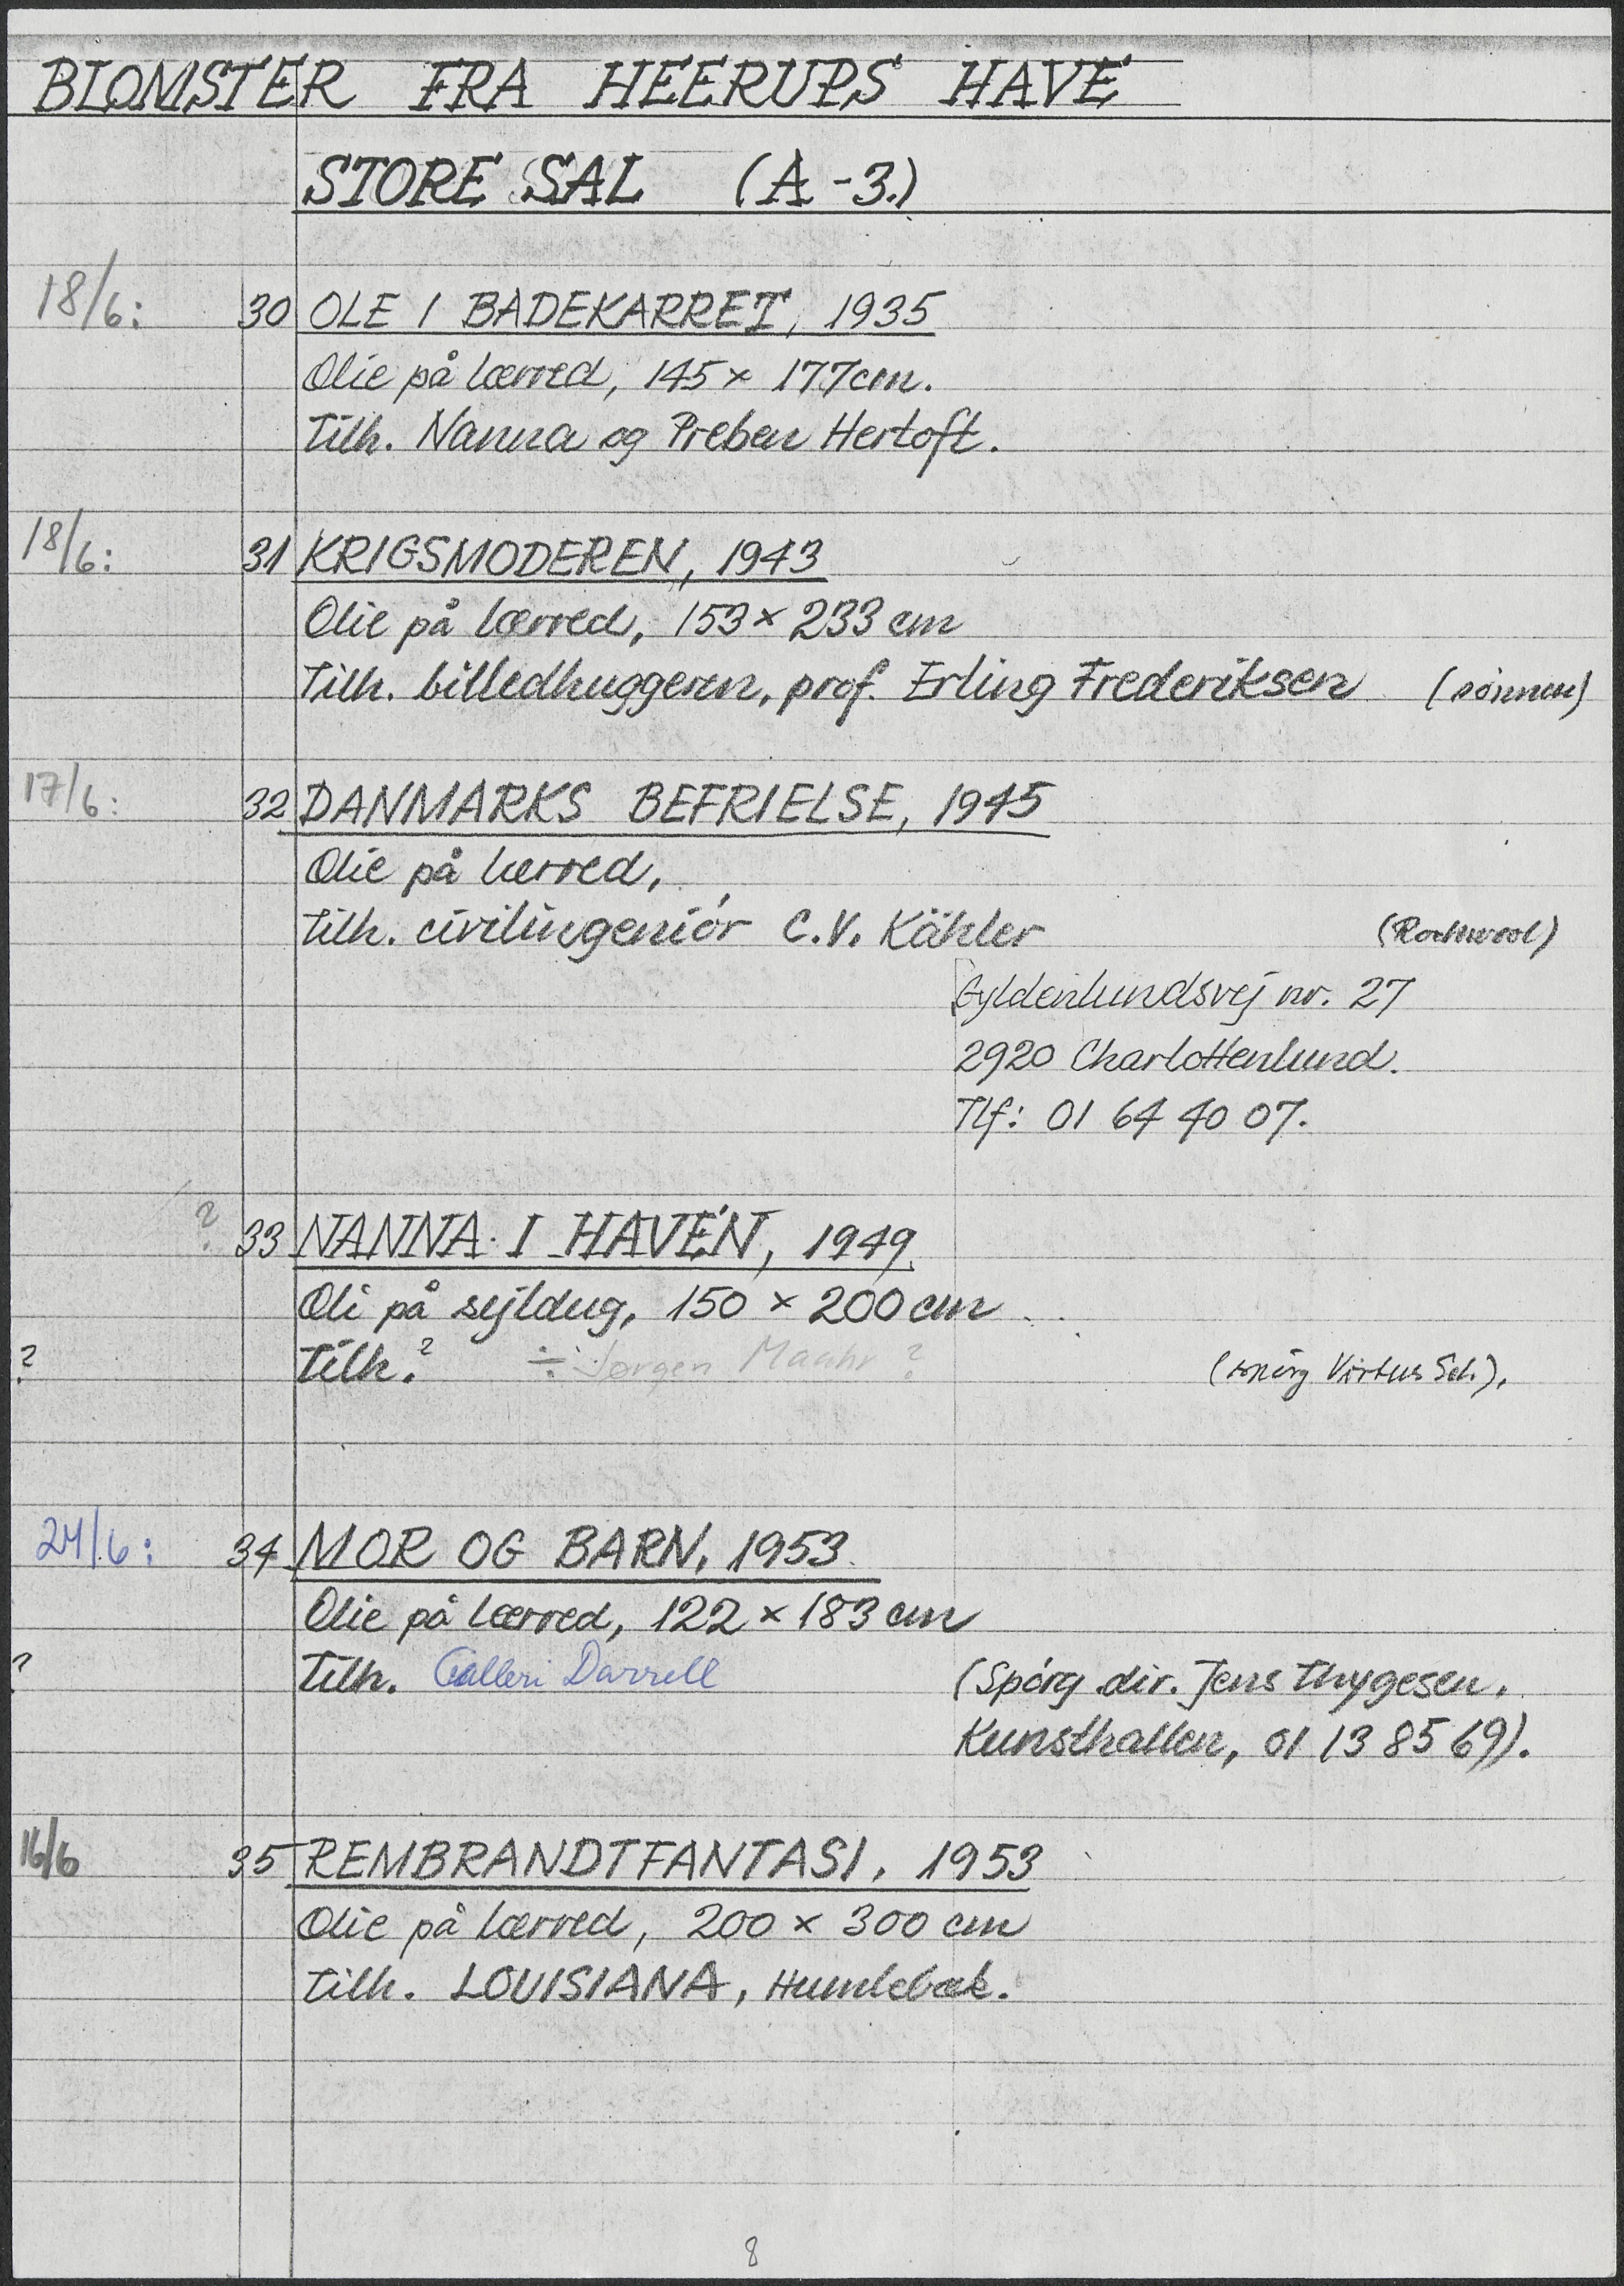 BLOMSTER FRA HEERUPS HAVE
STORE SAL (A-3.)
18/6: 30 OLE I BADEKARRET, 1935
Olie på lærred, 145 x 177 cm.
Tilh. Nanna og Preben Hertoft.
18/6: 31 KRIGSMODEREN, 1943
Olie på lærred, 153 x 233 cm
Tilh. billedhuggeren, prof. Erling Frederiksen (sönnen)
17/6: 32 DANMARKS BEFRIELSE, 1945
Olie på lærred,
Tilh. civilingeniór C.V. Kähler (Rockwool)
Gyldenlundsvej nr. 27
2920 Charlottenlund.
Tlf: 01 64 40 07.
? 33 NANNA I HAVEN, 1949
Oli på sejldug, 150 x 200 cm
? Tilh.? ÷ Jørgen Maahr ? (spörg Virtus Sch.).
24/6: 34 MOR OG BARN, 1953
Olie på lærred, 122 x 183 cm
? Tilh. Galleri Darrell (Spórg dir. Jens Thygesen,
Kunsthallen, 01 13 85 69).
16/6 35 REMBRANDTFANTASI, 1953
Olie på lærred, 200 x 300 cm
Tilh. LOUISIANA, Humlebæk.
8